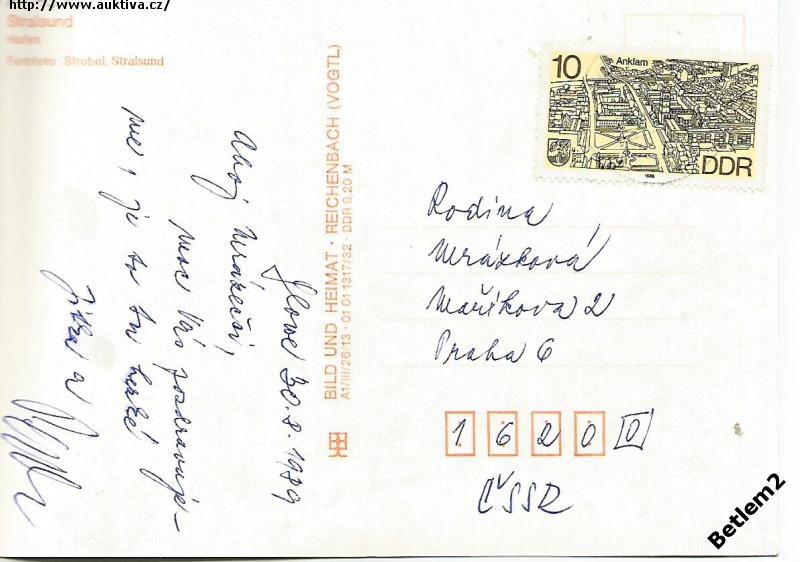 http://www.auktiva.cz/
Stralsund
Hafen
Farbfoto: Strobel, Stralsund
BILD UND HEIMAT · REICHENBACH (VOGTL)
A1/III/26/13 · 01 01 1317/32 · DDR 0,20 M
Glowe 30.8.1989
Ahoj Mrázečci,
moc Vás pozdravuje-
me, je to tu hezké
Jitka a
10
Anklam
DDR
1988
Rodina
Mrázková
Maříkova 2
Praha 6
1 6 2 0 0
ČSSR
Betlem2